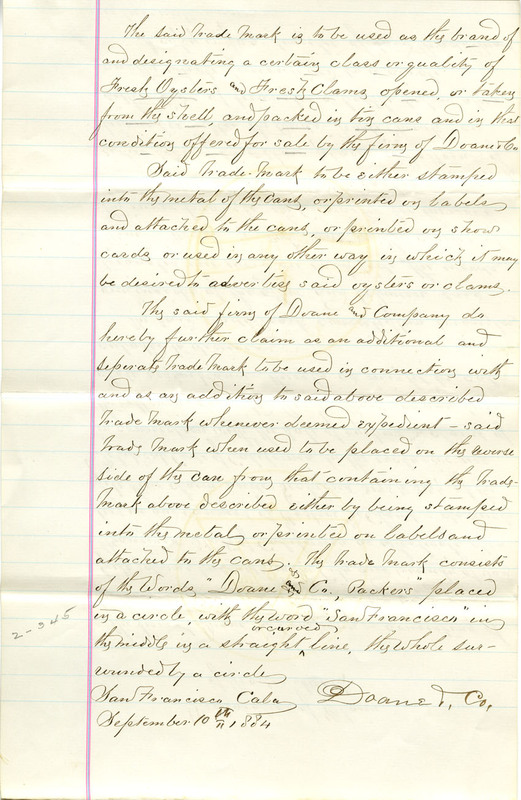 The said Trade Mark is to be used as the brand of
and designating a certain class or quality of
Fresh Oysters and Fresh Clams, opened, or taken
from the shell, and packed in tin cans and in that
condition offered for sale by the firm of Doane & Co
Said Trade-Mark to be either stamped
into the metal of the cans, or printed on labels
and attached to the cans, or printed on show
cards or used in any other way in which it may
be desired to advertise said oysters or clams.
The said firm of Doane and Company do
hereby further claim as an additional and
seperate Trade Mark to be used in connection with
and as an addition to said above described
Trade Mark whenever deemed expedient - said
Trade Mark when used to be placed on the reverse
side of the can from that containing the Trade-
Mark above described either by being stamped
into the metal or printed on labels and
attached to the cans. The Trade Mark consists
of the Words, "Doane and Co., Packers" placed
in a circle, with the word "San Francisco" in
the middle in a straight or curved line, the whole sur-
rounded by a circle
2-345
San Francisco Cala
Doane & Co.
September 10th 1884